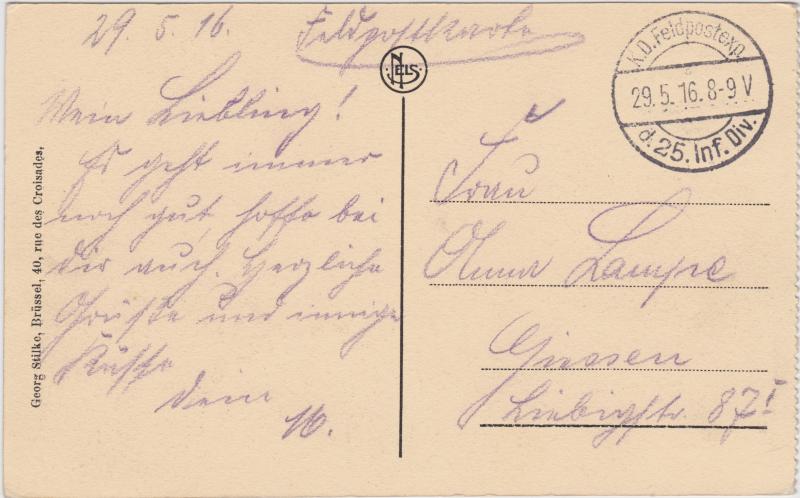 29. 5. 16. Feldpostkarte
NELS
Mein Liebling!
Es geht immer
noch gut, hoffe bei
dir auch. Herzliche
Grüsse und innige
Küsse
dein
W.
Georg Stilke, Brüssel, 40, rue des Croisades,
K.D.Feldpostexp.
29.5.16.8-9 V
d.25.Inf.Div.
Frau
Anna Lampe
Giessen
Liebigstr. 87 I